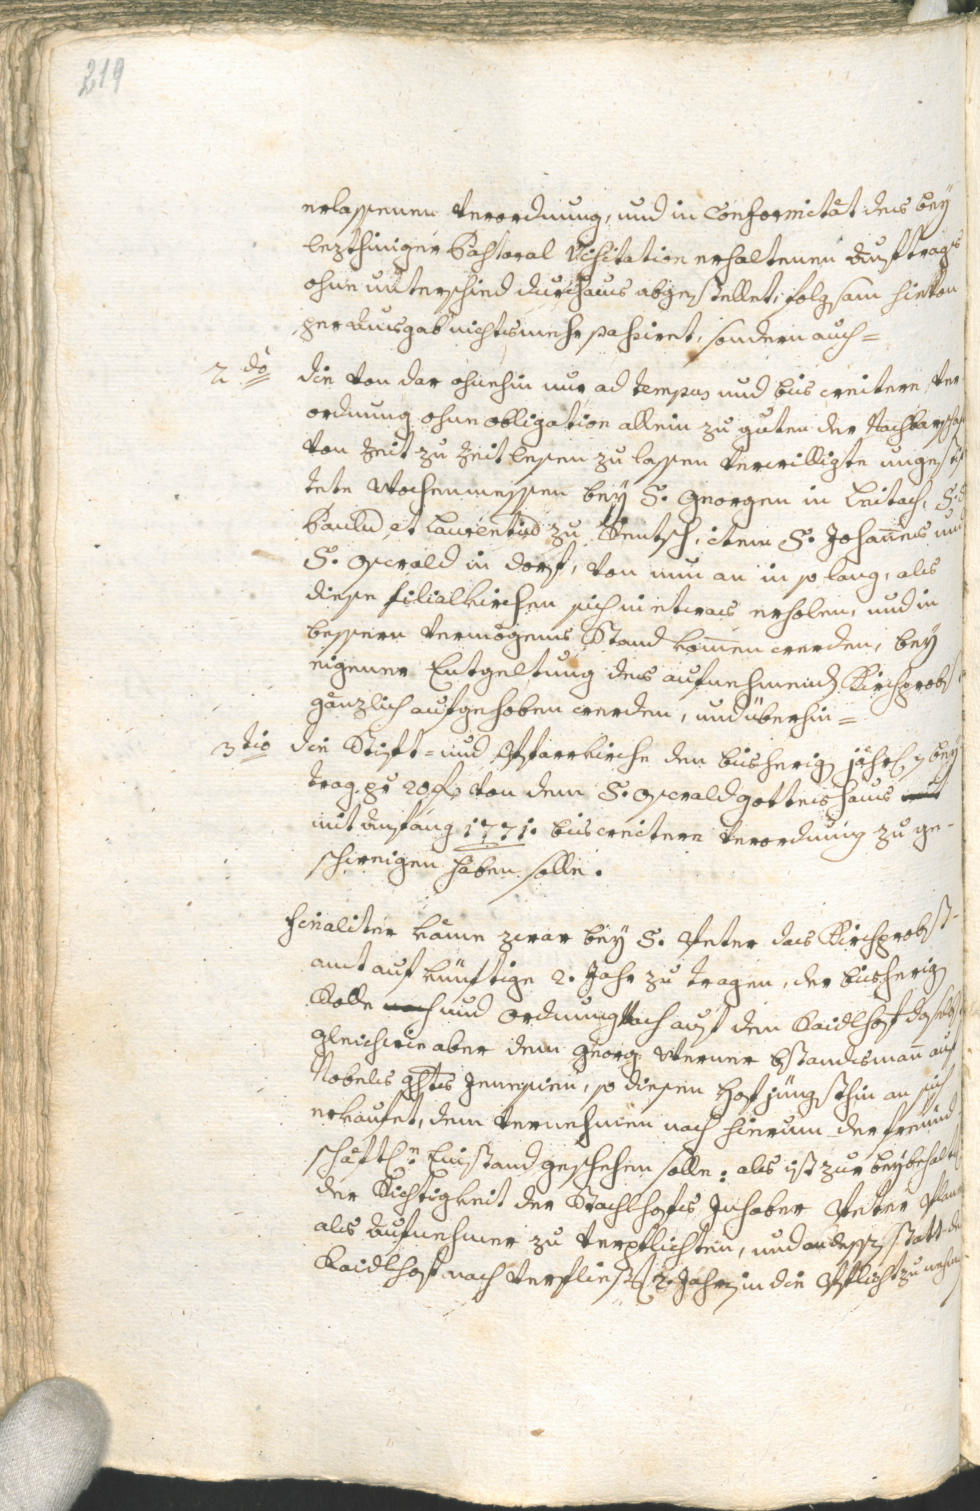 219
erlassenen Verordnung, und in Conformität des beÿ
lezthiniger Pastoral Visitation erhaltenen Auftrags
ohne unterschied durchaus abgestellet, folgsam hievon
per ausgab nichts mehr passiret, sondern auch =
2do die von dar ohnehin nur ad tempus und bis weitere Ver
ordnung ohne obligation allein zu guten der Nachbarscha
von Zeit zu Zeit lesen zu lassen verwilligte ungestif
tete Wochenmessen beÿ S. Georgen in Leitach, S.S.
Pauln et Laurentio zu Rentsch, item S. Johannes und
S. Oswald in Dorf, von nun an in so lang, als
diese filialkirchen sich in etwas erholen, und in
bessern Vermögens Stand kommen werden, beÿ
eigener Entgeltung des aufnehmend Kirchprobs
gänzlich aufgehoben werden, und überhin =
3tio die Stift= und Pfarrkirche den bisherig jährl. beÿ
trag pr 20 f. von dem S. Oswald gotteshaus
mit Anfang 1771. bis weitere Verordnung zu ge-
schweigen haben solle.
Finaliter käme zwar beÿ S. Peter das Kirchprobst-
amt auf künftige 2. Jahr zu tragen, der bisherig
Rolle und Ordnung nach auf den Kaidlhof daselbst
gleichwie aber dem Georg Werner bstandsmann auf
Nobels Jenesien, so diesen Hof jüngsthin an sich
erkaufet, dem Vernehmen nach hierum der freund
schäftl. Einstand geschehen solle: als ist zur beÿbehaltu
der Richtigkeit der Stachlhofs Inhaber Peter
als Aufnehmer zu verpflichten, und an dessen statt der
Kaidlhof nach verfliesst 2. Jahren in die Pflicht zu nehmen